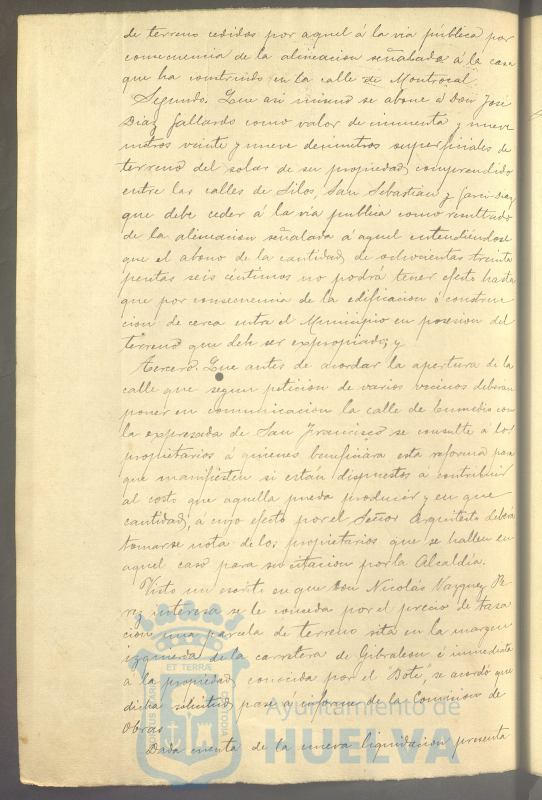 de terreno cedidos por aquel á la via pública por
consecuencia de la alineacion señalada á la casa
que ha construido en la calle de Montrocal.
Segundo. Que asi mismo se abone á Don José
Diaz Gallardo como valor de cincuenta y nueve
metros veinte y nueve decimetros superficiales de
terreno del solar de su propiedad, comprendido
entre las calles de Silos, San Sebastian y Garci-Diaz
que debe ceder á la via publica como resultado
de la alineacion señalada á aquel entendiendose
que el abono de la cantidad, de ochocientas treinta
pesetas seis céntimos no podrá tener efecto hasta
que por consecuencia de la edificacion ó construc-
cion de cerca entre el Municipio en posesion del
terreno que debe ser expropiado; y
Tercero. Que antes de acordar la apertura de la
calle que segun peticion de varios vecinos deberan
poner en comunicacion la calle de con
la expresada de San Francisco se consulte á los
propietarios á quienes beneficiara esta reforma para
que manifiesten si están dispuestos á contribuir
al costo que aquella pueda producir y en que
cantidad, á cuyo efecto por el Señor Arquitecto debera
tomarse nota de los propietarios que se hallen en
aquel caso para su citacion por la Alcaldía.
Visto un escrito en que Don Nicolás Vazquez Pe-
rez interesa se le conceda por el precio de tasa-
cion una parcela de terreno sita en la margen
izquierda de la carretera de Gibraleon é inmediata
á la propiedad, conocida por el "Bote", se acordó que
dicha solicitud pase á informe de la Comision de
Obras.
Dada cuenta de la nueva liquidacion presenta
PORTUS MARIS ET TERRAE CUSTODIA
Ayuntamiento de
HUELVA